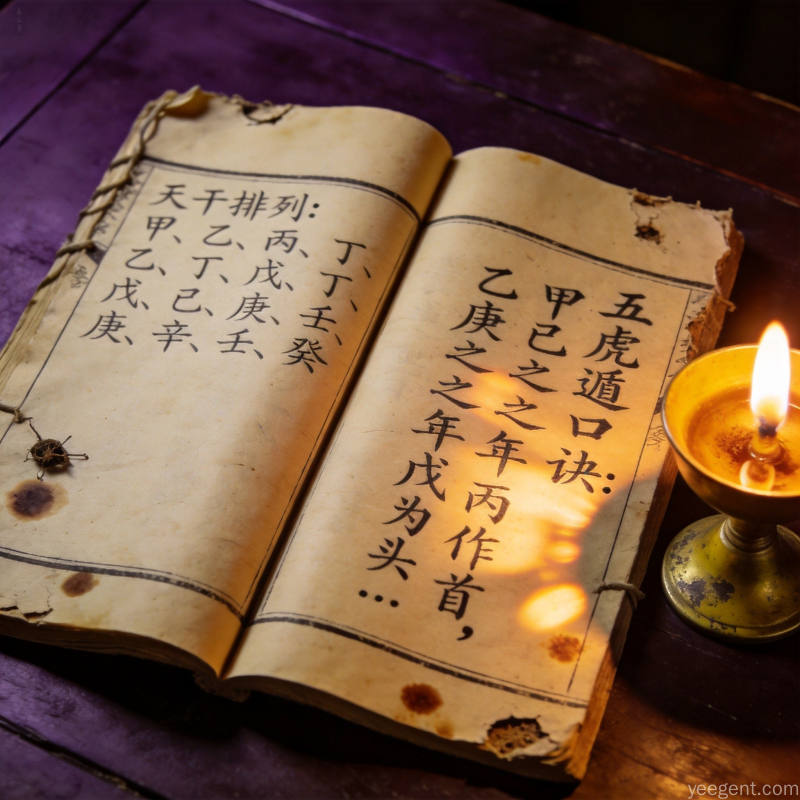 天干排列:
甲、乙、丙、丁、
乙、丁、戊、丁、
戊、己、庚、壬、
庚、辛、壬、癸
五虎遁口诀:
甲己之之年丙作首，
乙庚之之年戊为头…
yeegent.com